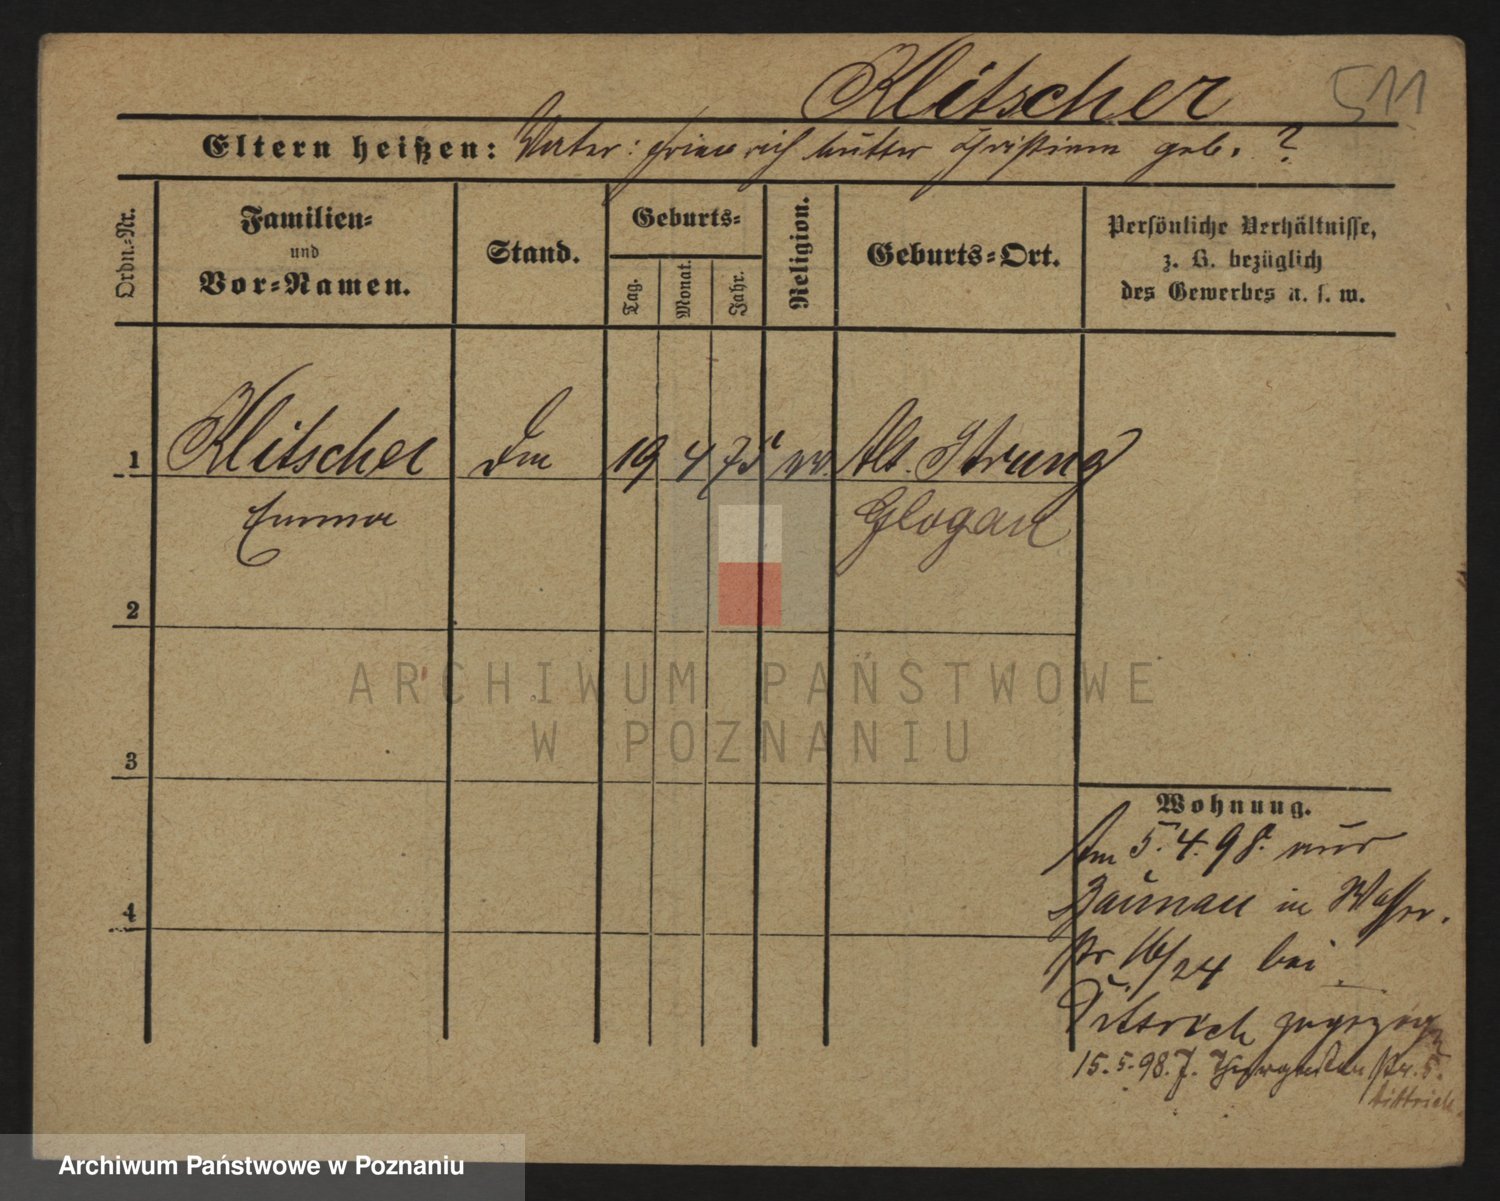 Klitscher
511
Eltern heißen: Vater: Heinrich Mutter Christiane geb. ?
Ordn.-Nr.
Familien-
und
Vor-Namen.
Stand.
Geburts-
Tag.
Monat.
Jahr.
Religion.
Geburts-Ort.
Persönliche Verhältnisse,
z. B. bezüglich
des Gewerbes u. s. w.
1 Klitscher 19 4 75 ev. Alt. Strunz
Emma Glogau
2
3
4
Wohnung.
Am 5.4.98. aus
Zaunau in Wasser-
str 16/24 bei
Dittrich zugezogen
15.5.98. J. Thiergarten str. 5.
Dittrich
ARCHIWUM PAŃSTWOWE
W POZNANIU
Archiwum Państwowe w Poznaniu